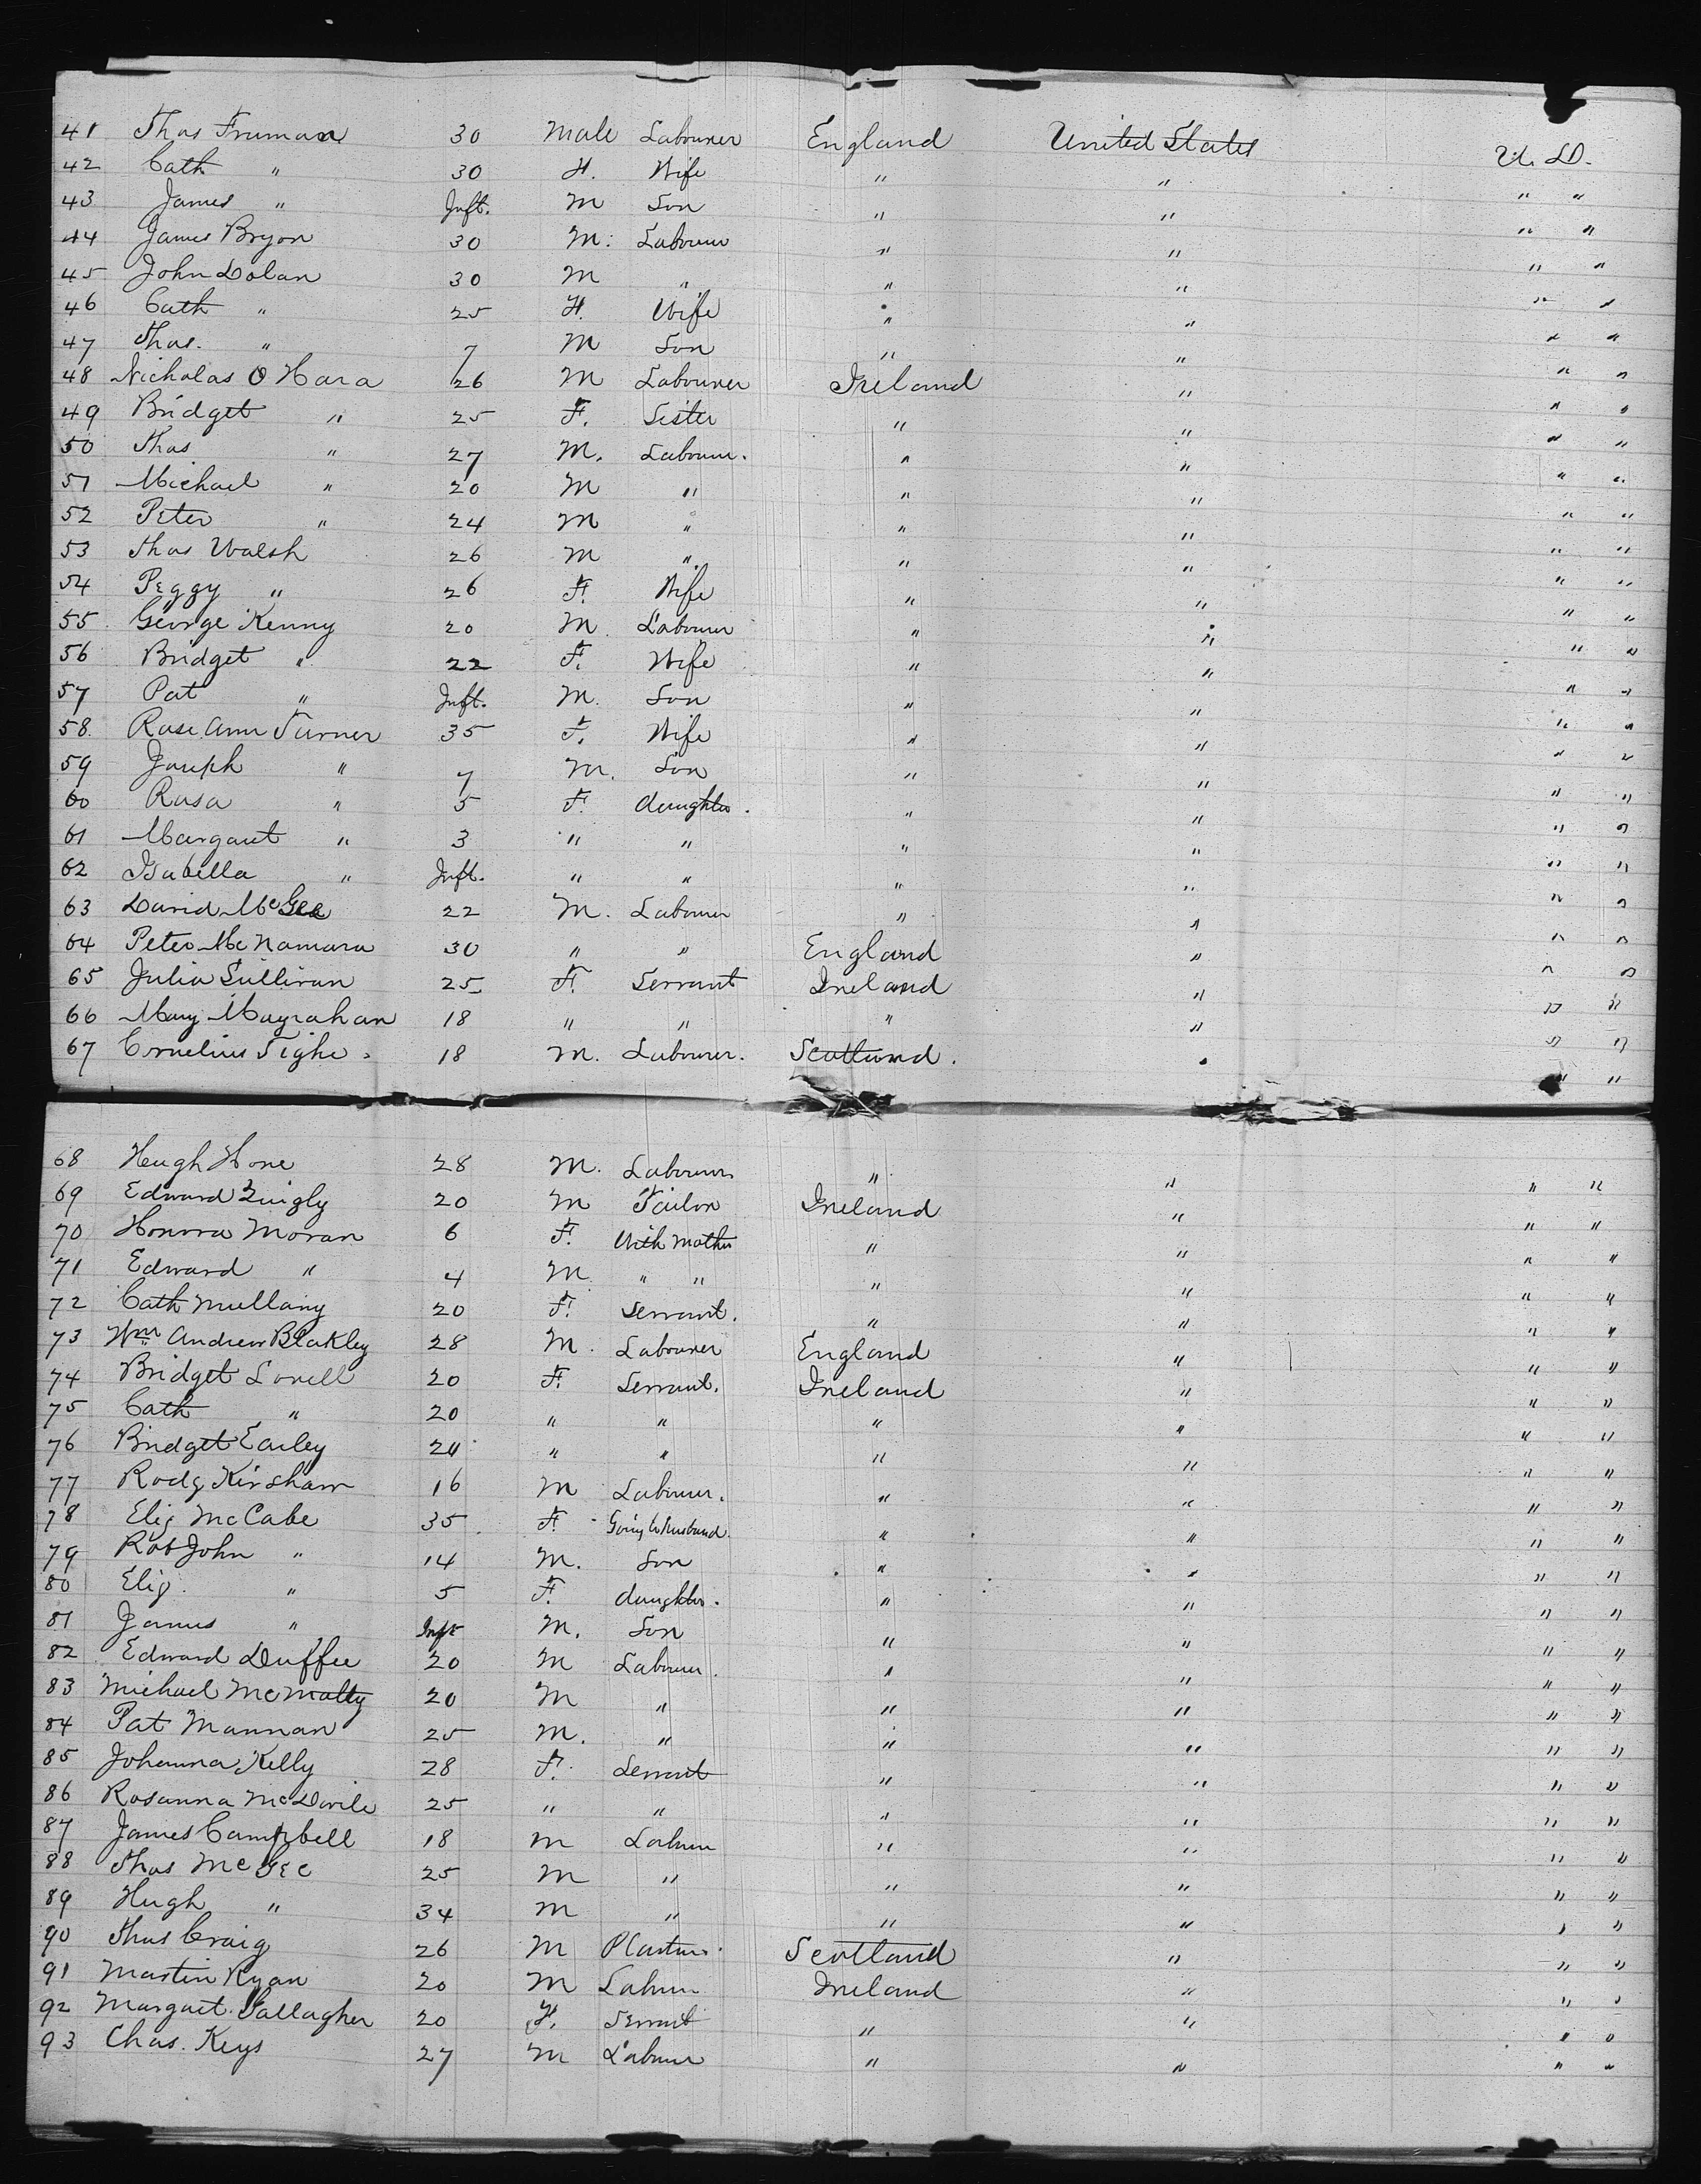 41 Thos Fruman 30 Male Labourer England United States U. LD.
42 Cath " 30 F. Wife " " " "
43 James " Inft. M Son " " " "
44 James Bryon 30 M. Labourer " " " "
45 John Dolan 30 M " " " " "
46 Cath " 25 F. Wife " " " "
47 Thos. " 7 M Son " " " "
48 Nicholas O Hara 26 M Labourer Ireland " " "
49 Bridget " 25 F. Sister " " " "
50 Thos " 27 M. Labourer. " " " "
51 Michael " 20 M " " " " "
52 Peter " 24 M " " " " "
53 Thos Walsh 26 M " " " " "
54 Peggy " 26 F. Wife " " " "
55 George Kenny 20 M. Labourer " " " "
56 Bridget " 22 F. Wife " " " "
57 Pat " Inft. M. Son " " " "
58. Rose Ann Turner 35 F. Wife " " " "
59 Joseph " 7 M. Son " " " "
60 Rosa " 5 F. daughter. " " " "
61 Margaret " 3 " " " " " "
62 Isabella " Inft. " " " " " "
63 David McGee 22 M. Labourer " " " "
64 Peter McNamara 30 " " England " " "
65 Julia Sullivan 25 F. Servant Ireland " " "
66 Mary Mayrahan 18 " " " " " "
67 Cornelius Tighe. 18 M. Labourer. Scotland. " " "
68 Hugh Hone 28 M. Labourer " " " "
69 Edward Quigly 20 M Tailor Ireland " " "
70 Honora Moran 6 F. With Mother " " " "
71 Edward " 4 M " " " " " "
72 Cath Mullany 20 F. Servant. " " " "
73 Wm Andrew Blakley 28 M. Labourer England " " "
74 Bridget Lovell 20 F. Servant. Ireland " " "
75 Cath " 20 " " " " " "
76 Bridget Earley 24 " " " " " "
77 Rodg Kirsham 16 M Labourer. " " " "
78 Eliz McCabe 35 F. Going to husband. " " " "
79 Rob John " 14 M. Son " " " "
80 Eliz. " 5 F. daughter. " " " "
81 James " Inft M. Son " " " "
82 Edward Duffee 20 M Labourer. " " " "
83 Michael McMalty 20 M " " " " "
84 Pat Mannan 25 M. " " " " "
85 Johanna Kelly 28 F. Servant " " " "
86 Rosanna McDavile 25 " " " " " "
87 James Campbell 18 M Labourer " " " "
88 Thos McGee 25 M " " " " "
89 Hugh " 34 M " " " " "
90 Thos Craig 26 M Plasterer. Scotland " " "
91 Martin Ryan 20 M Labourer Ireland " " "
92 Margaret Gallagher 20 F. Servant " " " "
93 Chas. Keys 27 M Labourer " " " "